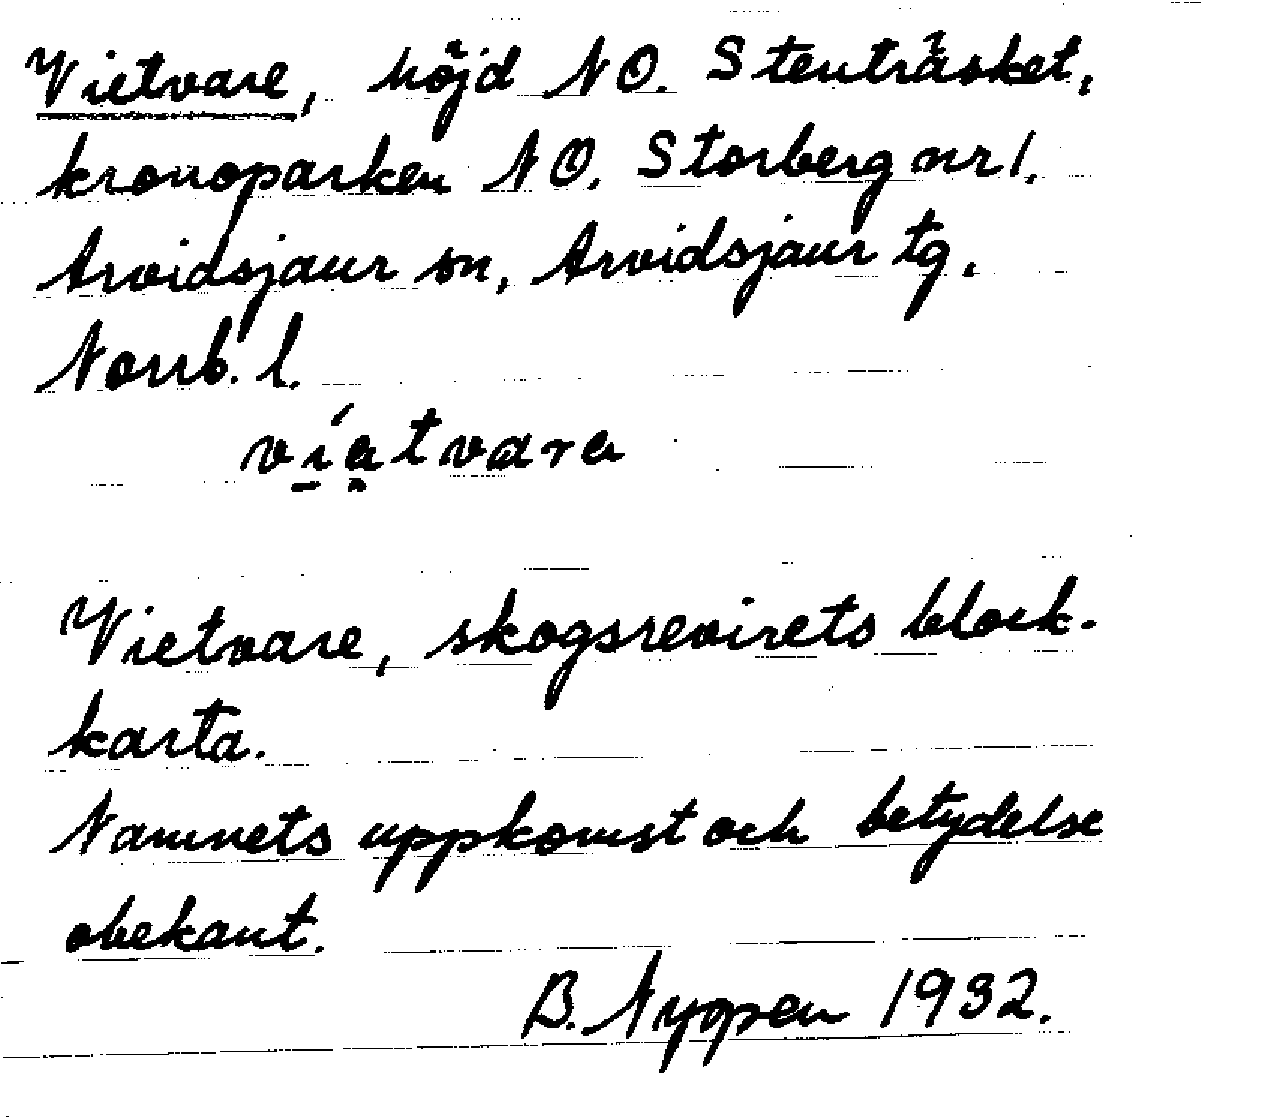 Vietvare, höjd NO. Stenträsket,
kronoparken NO. Storberg nr 1.
Arvidsjaur sn, Arvidsjaur tg.
Norrb. l.
víatvara
Vietvare, skogsrevirets block-
karta.
Namnets uppkomst och betydelse
obekant.
B. Nyppen 1932.